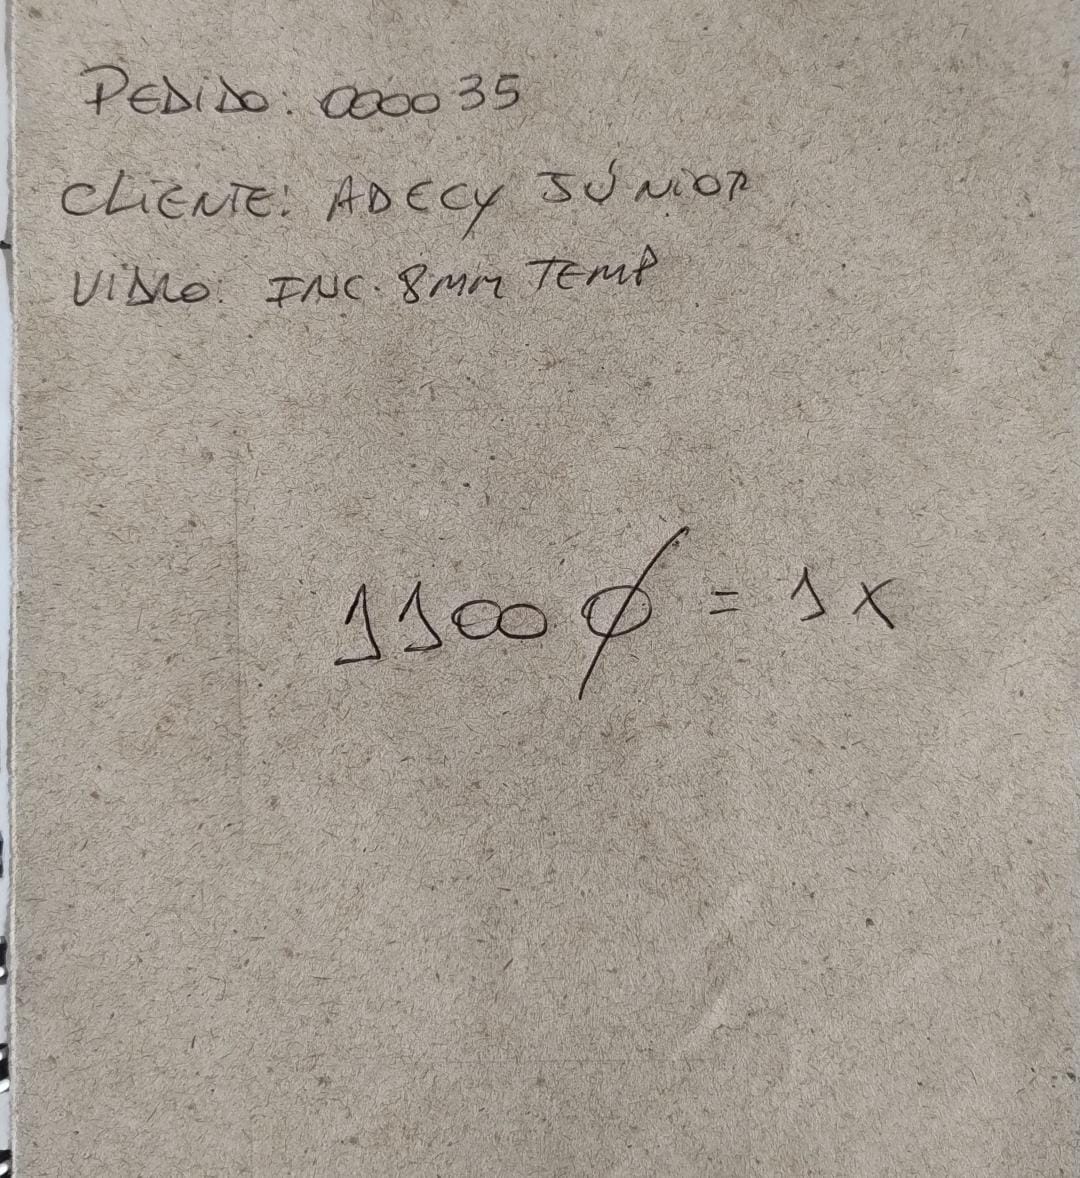 PEDIDO: 000035
CLIENTE: ADECY JÚNIOR
VIDRO: INC. 8MM TEMP
1100 Ø = 1x